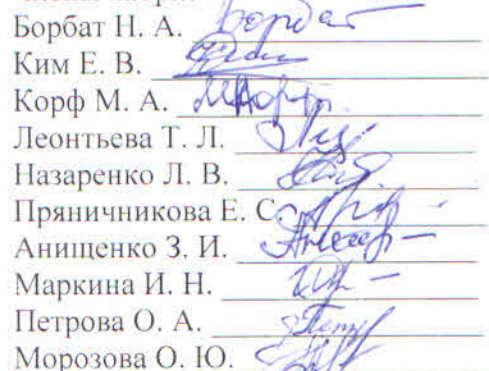 Борбат Н. А.
Ким Е. В.
Корф М. А.
Леонтьева Т. Л.
Назаренко Л. В.
Пряничникова Е. С.
Анищенко З. И.
Маркина И. Н.
Петрова О. А.
Морозова О. Ю.